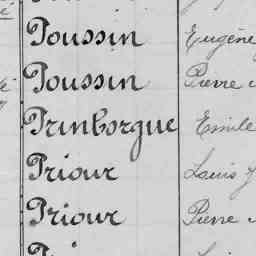 Poussin Eugène
Poussin Pierre
Prinborgue Emile
Priour Louis
Priour Pierre